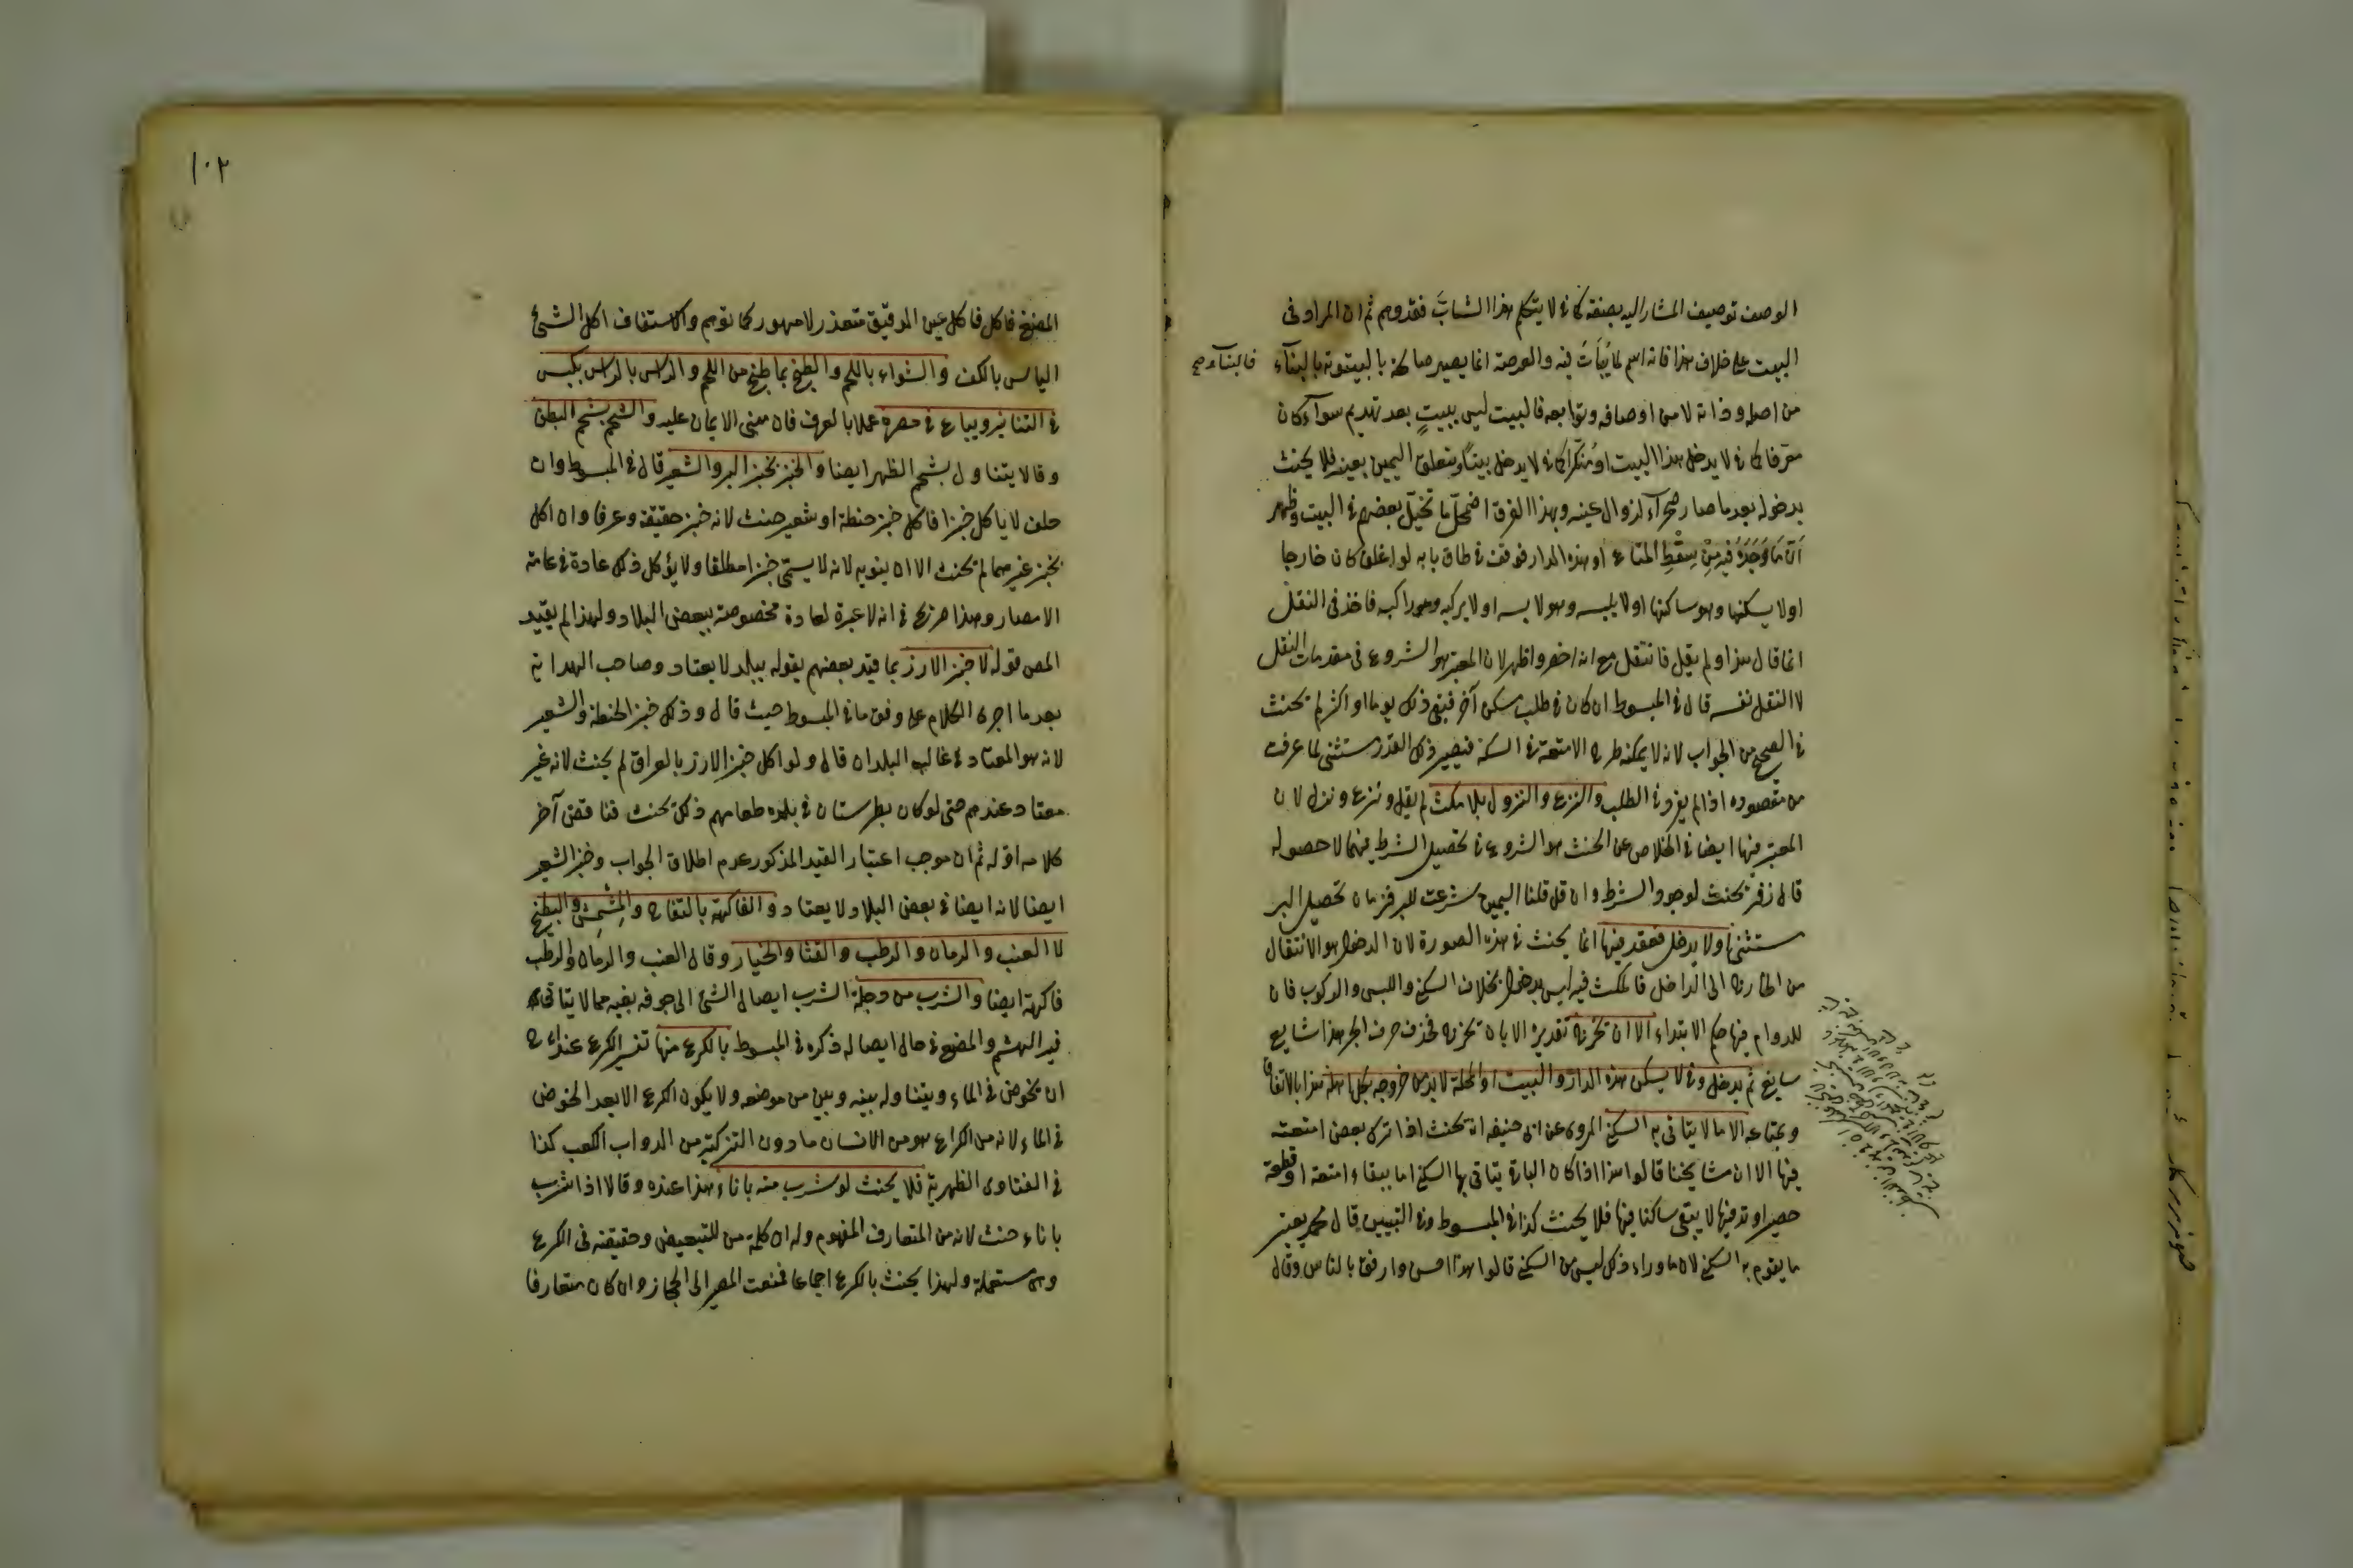 الوصف توصيف المشار اليه بصفة كما في لا يتكلم هذا الشابّ فقد وهم ثم ان المراد في
البيت على خلاف هذا فانه اسم لما يُبَاتُ فيه والعرصة انما يصير صالحة بالبيتوتة بالبناء
فالبناء صح
من اصله وذاته لا من اوصافه وتوابعه فالبيت ليس ببيتٍ بعد تهديم سواء كان
معرّفا كما في لا يدخل هذا البيت او منكّرا كما في لا يدخل بيتاً ويتعلق اليمين بعينه فلا يحنث
بدخوله بعد ما صار صحراء لزوال عينه وبهذا الفرق اضمحلّ ما تخيّل بعضهم في البيت وظهر
اَنّ مَا وَجَدَهُ فيه مِنْ سِقْطِ المتاع او هذه الدار فوقف في طاق بابه لو اغلق كان خارجا
او لا يسكنها وهو ساكنها او لا يلبسه وهو لابسه او لا يركبه وهو راكبه فاخذ في النقل
انما قال هذا ولم يقل فانتقل مع انه اخصر واظهر لان المعتبر هو الشروع في مقدمات النقل
لا النقل نفسه قال في المبسوط ان كان في طلب مسكن آخر فبقي ذلك يوما او اكثر لم يحنث
في الصحيح من الجواب لانه لا يمكنه طرح الامتعة في السكة فيصير ذلك القدر مستثنى لما عرفت
من مقصوده اذا لم يفرط في الطلب والنزع والنزول بلا مكث لم يقل ونزع ونزل لان
المعتبر فيها ايضا في الخلاص عن الحنث هو الشروع في تحصيل الشرط فيهما لا حصوله
قال زفر يحنث لوجود الشرط وان قل قلنا اليمين شرعت للبر فزمان تحصيل البر
مستثنى او لا يدخل فقعد فيها انما يحنث في هذه الصورة لان الدخول هو الانتقال
من الخارج الى الداخل فالمكث فيه ليس بدخول بخلاف السكنى واللبس والركوب فان
للدوام فيها حكم الابتداء الا ان يخرج تقديره الا بان يخرج فحذف حرف الجر هذا شايع
سايغ ثم يدخل وفي لا يسكن هذه الدار والبيت او المحلة لا بد من خروجه بكل اهله هذا بالاتفاق
وبمتاعه الا ما لا يتأتى به السكنى المروى عن ابى حنيفه انه يحنث اذا ترك بعض امتعته
فيها الا ان مشايخنا قالوا هذا اذا كان الباقى يتأتى بها السكنى اما ببقاء امتعة او قطعة
حصير او وتد فيها لا يبقى ساكنا فيها فلا يحنث كذا في المبسوط وفي التبيين قال محمد يعتبر
ما يقوم به السكنى لان ما وراء ذلك ليس من السكنى قالوا هذا احسن وارفق بالناس وقال
١٠٢
المضغ فاكل فاكل عين الدقيق متعذر لا مهجور كما توهم والاستفاف اكل الشئ
اليابس بالكف والشواء باللحم والطبخ بما طبخ من اللحم والراس بالراس يكبس
في التنانير ويباع في مصره عملا بالعرف فان مبنى الايمان عليه والشحم بشحم البطن
وقالا يتناول بشحم الظهر ايضا والخبز بخبز البر والشعير قال في المبسوط وان
حلف لا ياكل خبزا فاكل خبز حنطة او شعير حنث لانه خبز حقيقة وعرفا وان اكل
بخبز غيرهما لم يحنث الا ان ينويه لانه لا يسمّى خبزا مطلقا ولا يؤكل ذلك عادة في عامة
الامصار وهذا صريح في انه لا عبرة لعادة مخصوصة ببعض البلاد ولهذا لم يقيد
المص قوله لا خبز الارز بما قيد بعضهم بقوله ببلد لا يعتاد وصاحب الهداية
بعد ما اجرى الكلام على وفق ما في المبسوط حيث قال وذلك خبز الحنطة والشعير
لانه هو المعتاد في غالب البلدان قال ولو اكل خبز الارز بالعراق لم يحنث لانه غير
معتاد عندهم حتى لو كان بطبرستان في بلده طعامهم ذلك يحنث فناقض آخر
كلامه اوّله ثم ان موجب اعتبار القيد المذكور عدم اطلاق الجواب وخبز الشعير
ايضا لانه ايضا في بعض البلاد لا يعتاد والفاكهة بالتفاح والمِشْمِش والبطيخ
لا العنب والرمان والرطب والقثا والخيار وقالا العنب والرمان والرطب
فاكهة ايضا والشرب من دجلة الشرب ايصال الشئ الى جوفه بفيه مما لا يتأتى
فيه الهشم والمضغ في حال ايصاله ذكره في المبسوط بالكرع منها تفسير الكرع عند ابى ح
ان يخوض في الماء ويتناوله بفيه وبين من موضعه ولا يكون الكرع الا بعد الخوض
في الماء لانه من الكراع هو من الانسان ما دون الركبة من الدواب الكعب كذا
في الفتاوى الظهيرية فلا يحنث لو شرب منه باناء هذا عنده وقالا اذا شرب
باناء حنث لانه من المتعارف المفهوم وله ان كلمة من للتبعيض وحقيقته في الكرع
وهى مستعملة ولهذا يحنث بالكرع اجماعا فمنعت المصير الى المجاز وان كان متعارفا